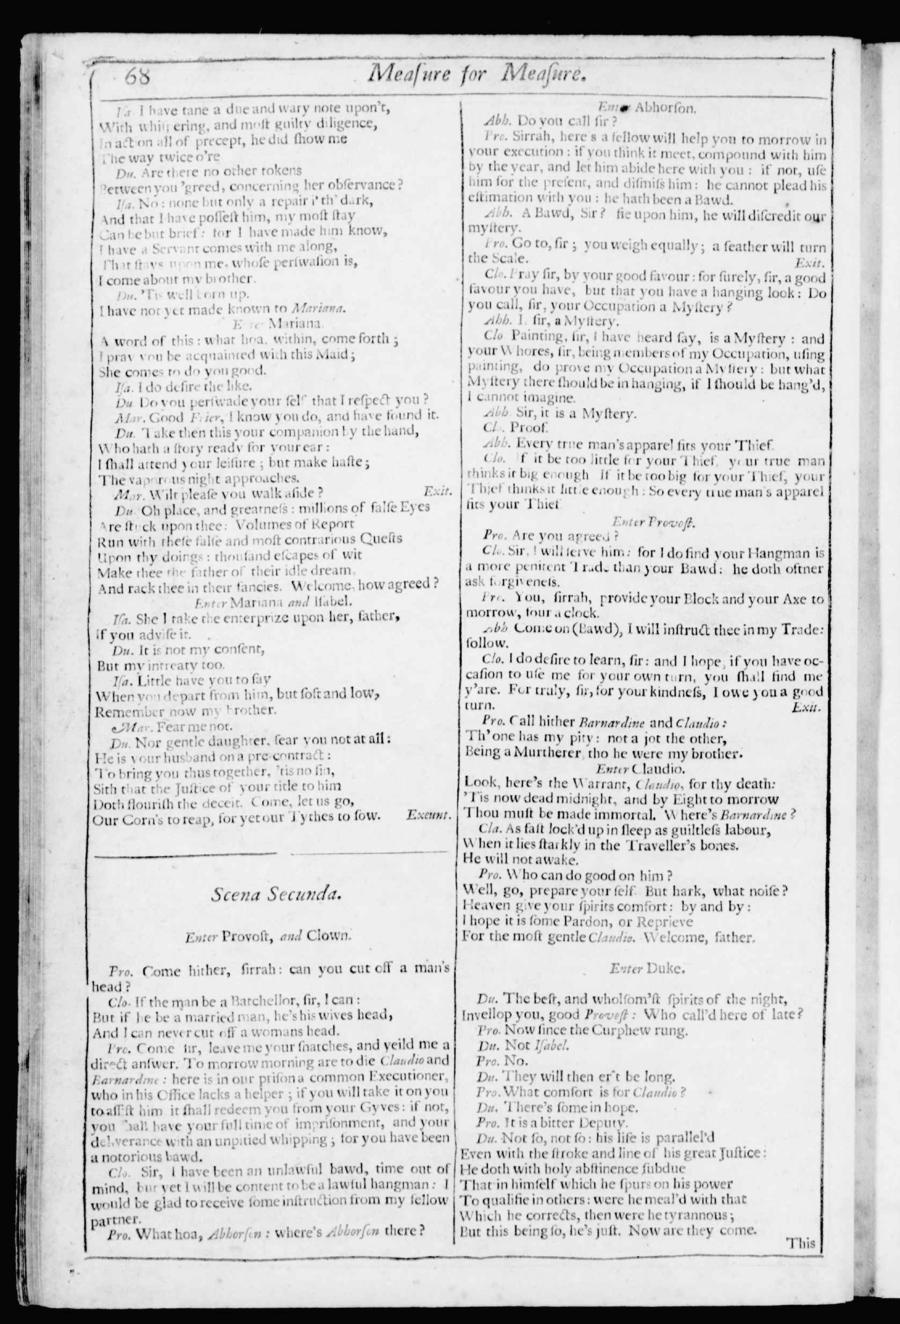 68
Meaſure for Meaſure.
Iſa. I have tane a due and wary note upon't,
With whiſpering, and moſt guilty diligence,
In action all of precept, he did ſhow me
The way twice o're
Du. Are there no other tokens
Between you 'greed, concerning her obſervance?
Iſa. No: none but only a repair i' th' dark,
And that I have poſſeſt him, my moſt ſtay
Can be but brief: for I have made him know,
I have a Servant comes with me along,
That ſtays upon me, whoſe perſwaſion is,
I come about my brother.
Du. 'Tis well born up.
I have not yet made known to Mariana.
Enter Mariana.
A word of this: what hoa, within, come forth;
I pray you be acquainted with this Maid;
She comes to do you good.
Iſa. I do deſire the like.
Du. Do you perſwade your ſelf that I reſpect you?
Mar. Good Frier, I know you do, and have found it.
Du. Take then this your companion by the hand,
Who hath a ſtory ready for your ear:
I ſhall attend your leiſure; but make haſte;
The vaporous night approaches.
Mar. Wilt pleaſe you walk aſide? Exit.
Du. Oh place, and greatneſs: millions of falſe Eyes
Are ſtuck upon thee: Volumes of Report
Run with theſe falſe and moſt contrarious Queſts
Upon thy doings: thouſand eſcapes of wit
Make thee the father of their idle dream,
And rack thee in their fancies. Welcome, how agreed?
Enter Mariana and Iſabel.
Iſa. She I take the enterprize upon her, father,
If you adviſe it.
Du. It is not my conſent,
But my intreaty too.
Iſa. Little have you to ſay
When you depart from him, but ſoft and low,
Remember now my brother.
Mar. Fear me not.
Du. Nor gentle daughter, fear you not at all:
He is your husband on a pre-contract:
To bring you thus together, 'tis no ſin,
Sith that the Juſtice of your title to him
Doth flouriſh the deceit. Come, let us go,
Our Corn's to reap, for yet our Tythes to ſow. Exeunt.
Scena Secunda.
Enter Provoſt, and Clown.
Pro. Come hither, ſirrah: can you cut off a man's
head?
Clo. If the man be a Batchellor, ſir, I can:
But if he be a married man, he's his wives head,
And I can never cut off a womans head.
Pro. Come ſir, leave me your ſnatches, and yeild me a
direct anſwer. To morrow morning are to die Claudio and
Barnardine: here is in our priſon a common Executioner,
who in his Office lacks a helper; if you will take it on you
to aſſiſt him it ſhall redeem you from your Gyves: if not,
you ſhall have your full time of impriſonment, and your
deliverance with an unpitied whipping; for you have been
a notorious bawd.
Clo. Sir, I have been an unlawful bawd, time out of
mind, but yet I will be content to be a lawful hangman: I
would be glad to receive ſome inſtruction from my fellow
partner.
Pro. What hoa, Abhorſon: where's Abhorſon there?
Enter Abhorſon.
Abh. Do you call ſir?
Pro. Sirrah, here s a fellow will help you to morrow in
your execution: if you think it meet, compound with him
by the year, and let him abide here with you: if not, uſe
him for the preſent, and diſmiſs him: he cannot plead his
eſtimation with you: he hath been a Bawd.
Abh. A Bawd, Sir? fie upon him, he will diſcredit our
myſtery.
Pro. Go to, ſir; you weigh equally; a feather will turn
the Scale. Exit.
Clo. Pray ſir, by your good favour: for ſurely, ſir, a good
favour you have, but that you have a hanging look: Do
you call, ſir, your Occupation a Myſtery?
Abh. I, ſir, a Myſtery.
Clo Painting, ſir, I have heard ſay, is a Myſtery: and
your Whores, ſir, being members of my Occupation, uſing
painting, do prove my Occupation a Myſtery: but what
Myſtery there ſhould be in hanging, if I ſhould be hang'd,
I cannot imagine.
Abh. Sir, it is a Myſtery.
Clo. Proof.
Abh. Every true man's apparel fits your Thief.
Clo. If it be too little for your Thief, your true man
thinks it big enough If it be too big for your Thief, your
Thief thinks it little enough: So every true man's apparel
fits your Thief
Enter Provoſt.
Pro. Are you agreed?
Clo. Sir, I will ſerve him: for I do find your Hangman is
a more penitent Trade than your Bawd: he doth oftner
ask forgiveneſs.
Pro. You, ſirrah, provide your Block and your Axe to
morrow, four a clock.
Abh Come on (Bawd), I will inſtruct thee in my Trade:
follow.
Clo. I do deſire to learn, ſir: and I hope, if you have oc-
caſion to uſe me for your own turn, you ſhall find me
y'are. For truly, ſir, for your kindneſs, I owe you a good
turn. Exit.
Pro. Call hither Barnardine and Claudio:
Th'one has my pity: not a jot the other,
Being a Murtherer tho he were my brother.
Enter Claudio.
Look, here's the Warrant, Claudio, for thy death:
'Tis now dead midnight, and by Eight to morrow
Thou muſt be made immortal. Where's Barnardine?
Cla. As faſt lock'd up in ſleep as guiltleſs labour,
When it lies ſtarkly in the Traveller's bones.
He will not awake.
Pro. Who can do good on him?
Well, go, prepare your ſelf. But hark, what noiſe?
Heaven give your ſpirits comfort: by and by:
I hope it is ſome Pardon, or Reprieve
For the moſt gentle Claudio. Welcome, father.
Enter Duke.
Du. The beſt, and wholſom'ſt ſpirits of the night,
Invellop you, good Provoſt: Who call'd here of late?
Pro. Now ſince the Curphew rung.
Du. Not Iſabel.
Pro. No.
Du. They will then er't be long.
Pro. What comfort is for Claudio?
Du. There's ſome in hope.
Pro. It is a bitter Deputy.
Du. Not ſo, not ſo: his life is parallel'd
Even with the ſtroke and line of his great Juſtice:
He doth with holy abſtinence ſubdue
That in himſelf which he ſpurs on his power
To qualifie in others: were he meal'd with that
Which he corrects, then were he tyrannous;
But this being ſo, he's juſt. Now are they come.
This